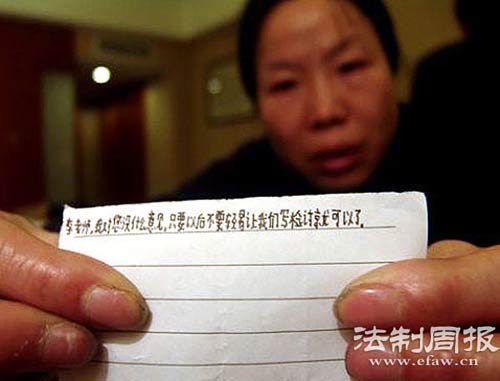 李老师，我对您没什么意见，只要以后不要轻易让我们写检讨就可以了。
法制周报
www.efaw.cn